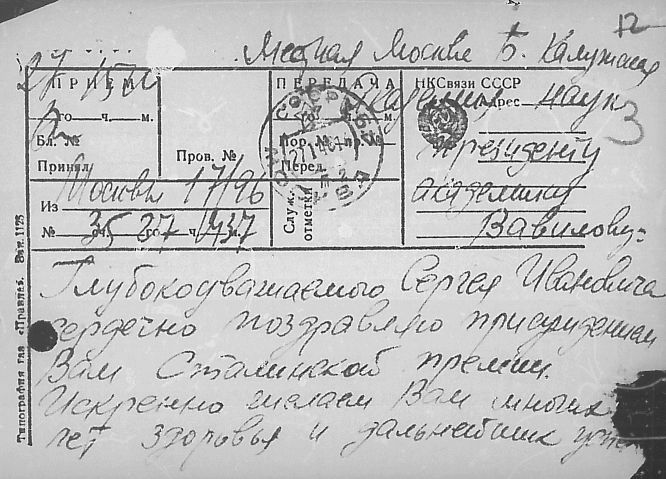 12
Местная Москва Б. Калужская
27
ПРИЕМ
ПЕРЕДАЧА
НКСвязи СССР
го ч. м.
Адрес
наук
3
Бл. №
Пор. № пр. №
президенту
Принял
Пров. №
Перед.
академику
Москвы 17/96
Вавилову=
Из
Служ. отметки
№ 35 27 го ч. 1737
Глубокоуважаемого Сергея Ивановича
сердечно поздравляю присуждением
Вам Сталинской премии.
Искренно желаем Вам многих
лет здоровья и дальнейших
Типография газ «Правда». Зак. 1128